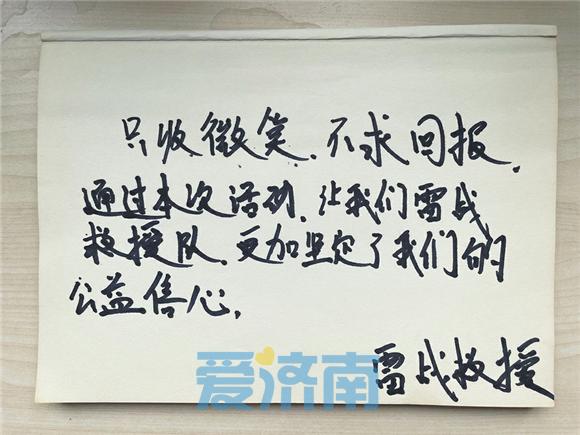 只收微笑、不求回报、
通过本次活动、让我们雷战
救援队、更加坚定了我们的
公益信心、
雷战救援
爱济南